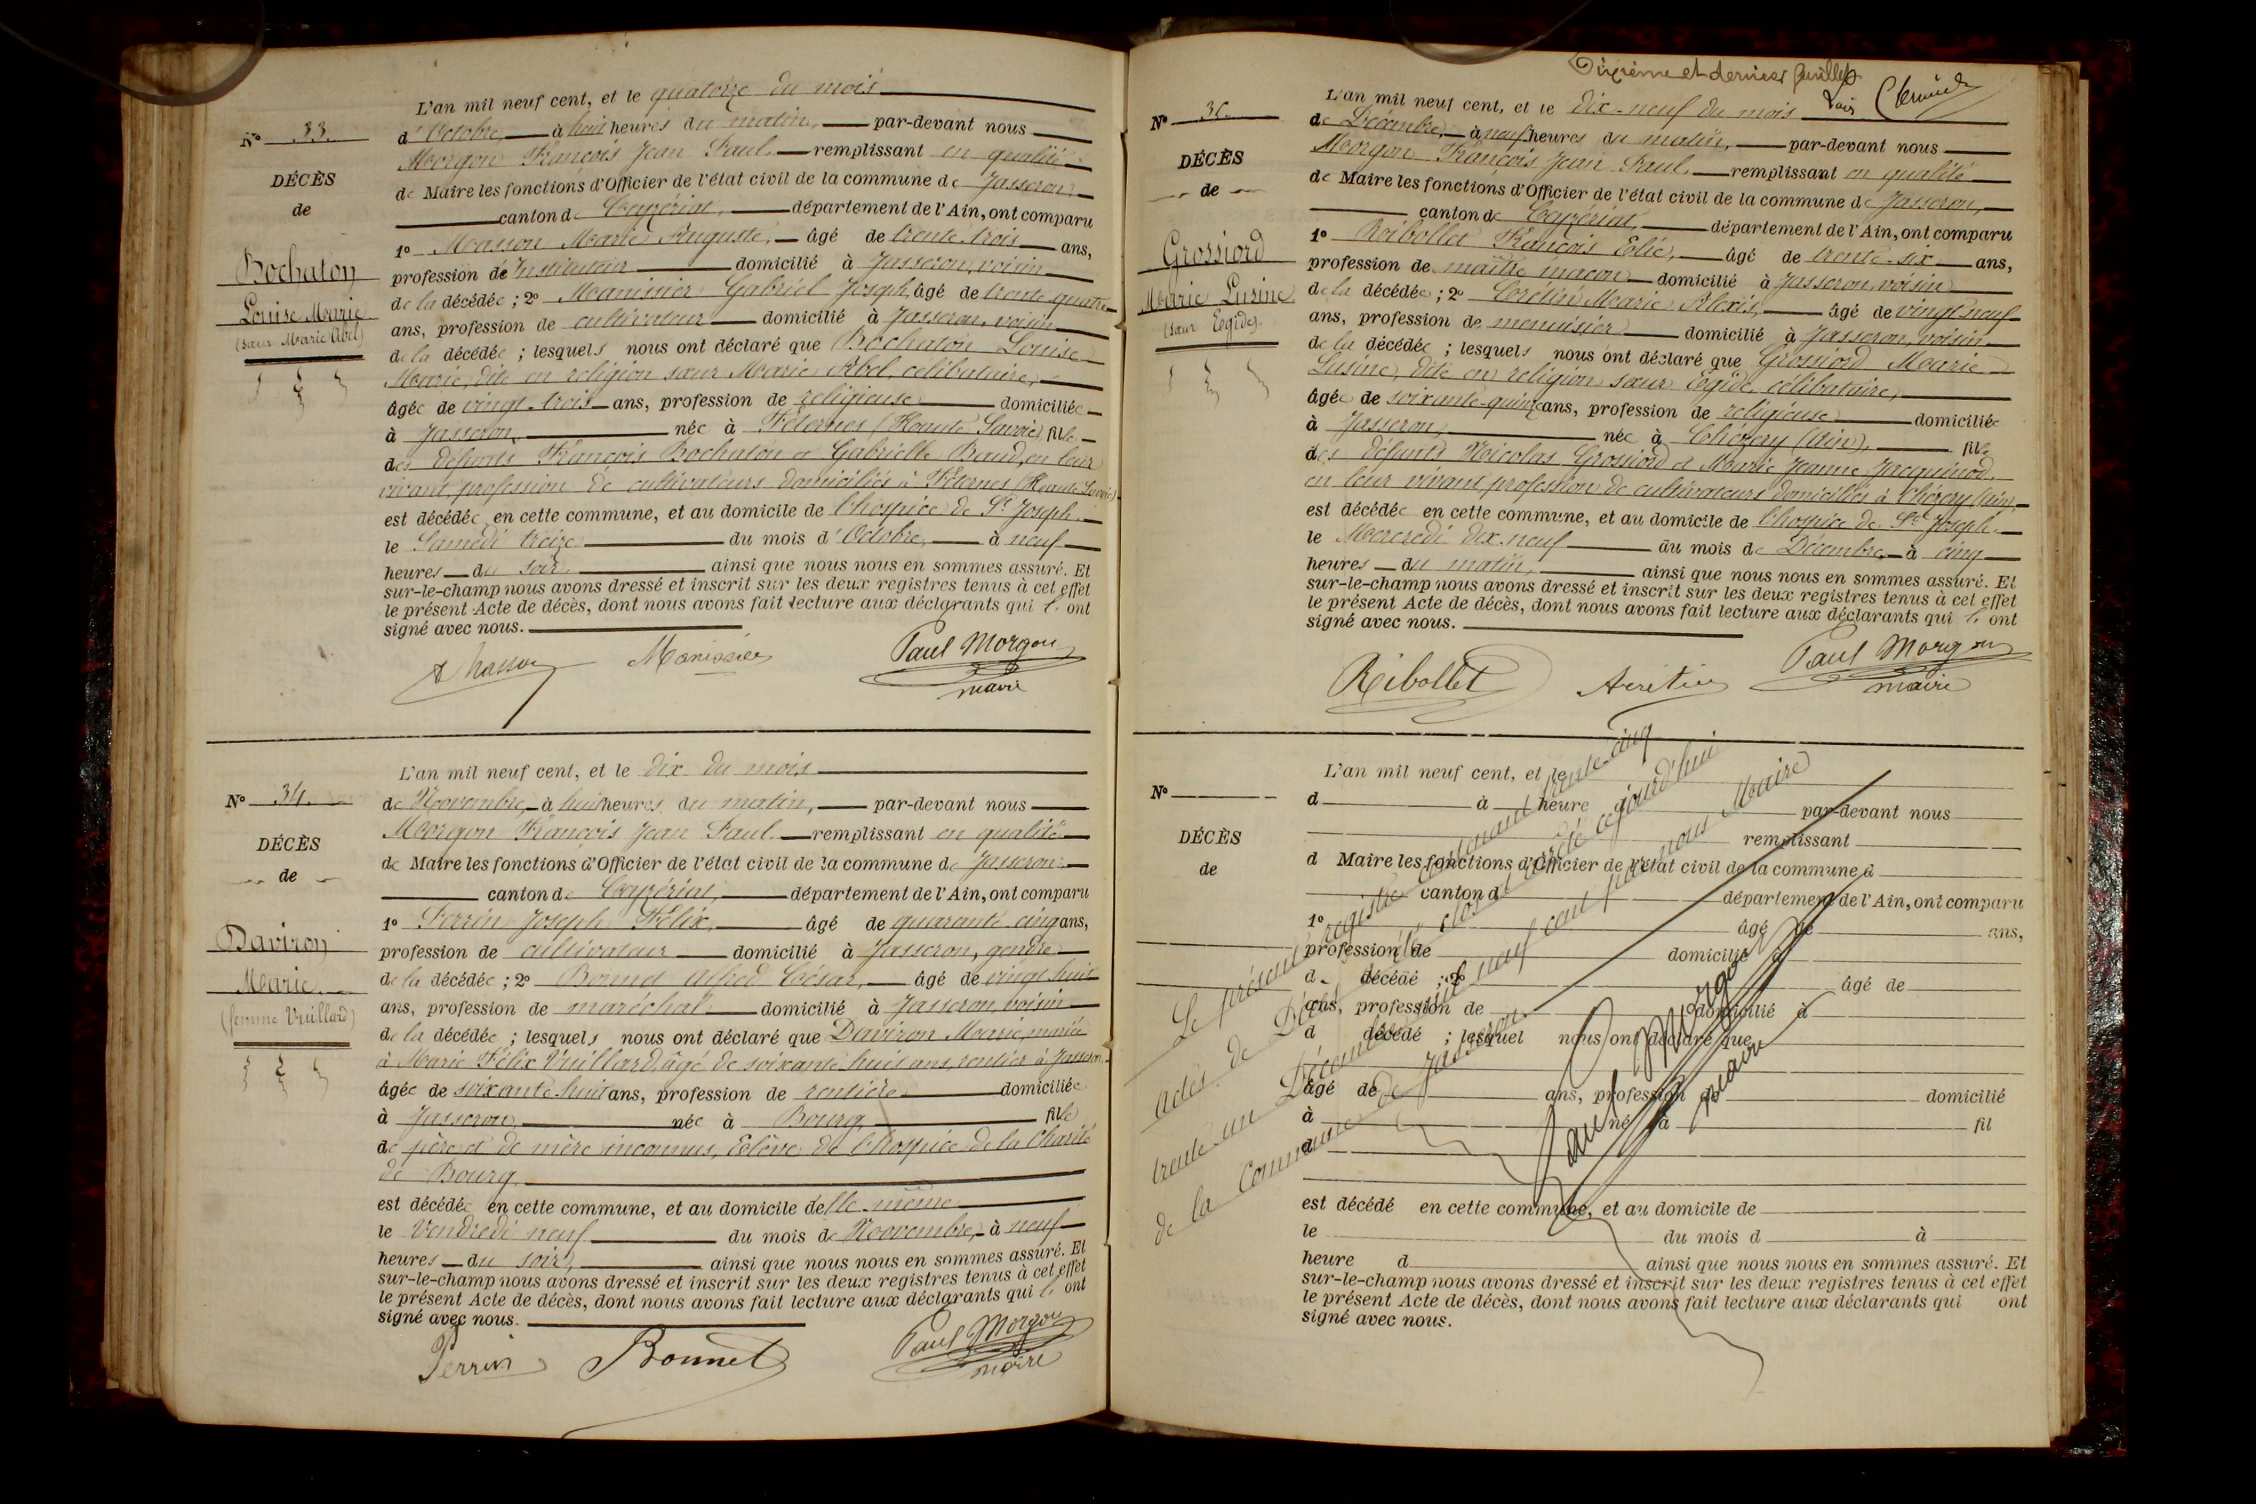 N° 33.
DÉCÈS
de
Bochaton
Louise Marie
(sœur Marie Abel)
L'an mil neuf cent, et le quatorze du mois
d'Octobre, à huit heures du matin, par-devant nous
Morgon François Jean Paul, remplissant en qualité
de Maire les fonctions d'Officier de l'état civil de la commune de Jasseron,
canton de Ceyzériat, département de l'Ain, ont comparu
1° Masson Marie Auguste, âgé de trente-trois ans,
profession de Instituteur domicilié à Jasseron, voisin
de la décédée ; 2° Manissier Gabriel Joseph, âgé de trente-quatre
ans, profession de cultivateur domicilié à Jasseron, voisin
de la décédée ; lesquels nous ont déclaré que Bochaton Louise
Marie, dite en religion sœur Marie Abel, célibataire,
âgée de vingt-trois ans, profession de religieuse domiciliée
à Jasseron, née à Féternes (Haute Savoie) fille
des défunts François Bochaton et Gabrielle Baud, en leur
vivant, profession de cultivateurs domiciliés à Féternes (Haute Savoie)
est décédée en cette commune, et au domicile de l'hospice de St Joseph.
le Samedi treize du mois d'Octobre, à neuf
heures du soir, ainsi que nous nous en sommes assuré. Et
sur-le-champ nous avons dressé et inscrit sur les deux registres tenus à cet effet
le présent Acte de décès, dont nous avons fait lecture aux déclarants qui l'ont
signé avec nous.
Masson Manissier Paul Morgon
maire
N° 34.
DÉCÈS
de
Daviron
Marie
(femme Vuillard)
L'an mil neuf cent, et le dix du mois
de Novembre, à huit heures du matin, par-devant nous
Morgon François Jean Paul remplissant en qualité
de Maire les fonctions d'Officier de l'état civil de la commune de Jasseron
canton de Ceyzériat, département de l'Ain, ont comparu
1° Perrin Joseph Félix, âgé de quarante-cinq ans,
profession de cultivateur domicilié à Jasseron, gendre
de la décédée ; 2° Bonnet Alfred César, âgé de vingt-huit
ans, profession de maréchal domicilié à Jasseron, voisin
de la décédée ; lesquels nous ont déclaré que Daviron Marie, mariée
à Marie Félix Vuillard, âgé de soixante huit ans, rentier à Jasseron,
âgée de soixante huit ans, profession de rentière domiciliée
à Jasseron née à Bourg fille
de père et de mère inconnus, Elève de l'hospice de la Charité
de Bourg,
est décédée en cette commune, et au domicile d'elle-même
le Vendredi neuf du mois de Novembre, à neuf
heures du soir, ainsi que nous nous en sommes assuré. Et
sur-le-champ nous avons dressé et inscrit sur les deux registres tenus à cet effet
le présent Acte de décès, dont nous avons fait lecture aux déclarants qui l'ont
signé avec nous.
Perrin Bonnet Paul Morgon
maire
Dixième et dernier feuillet
N° 35.
DÉCÈS
de
Grossiord
Marie Lusine
(sœur Egide)
L'an mil neuf cent, et le dix-neuf du mois
de Décembre, à neuf heures du matin, par-devant nous
Morgon François Jean Paul, remplissant en qualité
de Maire les fonctions d'Officier de l'état civil de la commune de Jasseron,
canton de Ceyzériat, département de l'Ain, ont comparu
1° Ribollet François Elie, âgé de trente-six ans,
profession de maître maçon domicilié à Jasseron, voisin
de la décédée ; 2° Crétin Marie Alexis, âgé de vingt-neuf
ans, profession de menuisier domicilié à Jasseron, voisin
de la décédée ; lesquels nous ont déclaré que Grossiord Marie
Lusine, dite en religion sœur Egide, célibataire,
âgée de soixante-quinze ans, profession de religieuse domiciliée
à Jasseron, née à Chézery (Ain), fille
des défunts Nicolas Grossiord et Marie Jeanne Jacquinod,
en leur vivant profession de cultivateurs domiciliés à Chézery (Ain),
est décédée en cette commune, et au domicile de l'hospice de St Joseph.
le Mercredi dix-neuf du mois de Décembre, à cinq
heures du matin, ainsi que nous nous en sommes assuré. Et
sur-le-champ nous avons dressé et inscrit sur les deux registres tenus à cet effet
le présent Acte de décès, dont nous avons fait lecture aux déclarants qui l'ont
signé avec nous.
Ribollet Paul Morgon
maire
N°
DÉCÈS
de
L'an mil neuf cent, et le
d à heure par-devant nous
remplissant
d Maire les fonctions d'Officier de l'état civil de la commune d
canton d département de l'Ain, ont comparu
1° âgé de ans,
profession de domicilié à
d décédé ; 2° âgé de
ans, profession de domicilié à
d décédé ; lesquel nous ont déclaré que
âgé de ans, profession de domicilié
à né à fil
d
est décédé en cette commune, et au domicile de
le du mois d à
heure d ainsi que nous nous en sommes assuré. Et
sur-le-champ nous avons dressé et inscrit sur les deux registres tenus à cet effet
le présent Acte de décès, dont nous avons fait lecture aux déclarants qui ont
signé avec nous.
Le présent registre contenant trente-cinq
actes de Décès a été clos et arrêté cejourd'hui
trente-un Décembre mil neuf cent par nous Maire
de la Commune de Jasseron.
Paul Morgon
maire